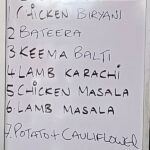 1 CHICKEN BIRYANI
2 BATEERA
3 KEEMA BALTI
4 LAMB KARACHI
5 CHICKEN MASALA
6 LAMB MASALA
7. POTATO + CAULIFLOWER